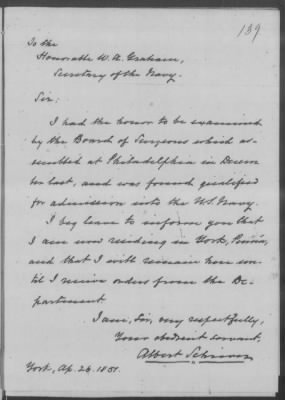 139
To the
Honorable W. A. Graham,
Secretary of the Navy.
Sir:
I had the honor to be examined
by the Board of Surgeons which as-
sembled at Philadelphia in Decem
ber last, and was found qualified
for admission into the U.S. Navy.
I beg leave to inform you that
I am now residing in York, Penna,
and that I will remain here un-
til I receive orders from the De-
partment
I am, Sir, very respectfully,
Your obedient servant,
Albert Schriver
York, Ap. 26. 1851.